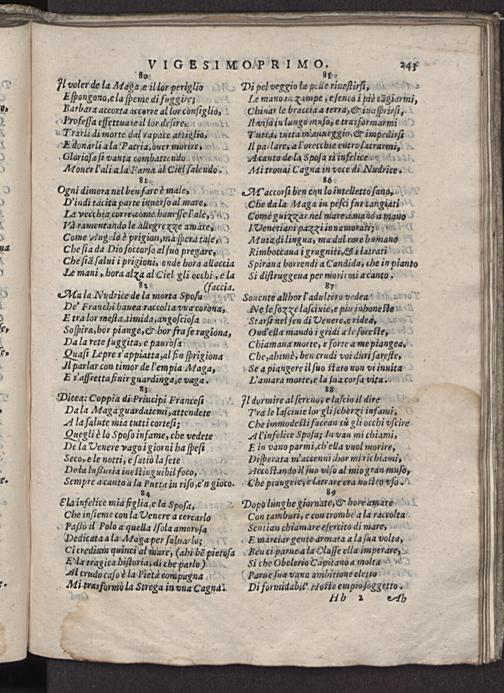 VIGESIMOPRIMO. 243
80
Il voler de la Maga, e il lor periglio
Espongono, e la speme di fuggire;
Barbara accorta accorre al lor consiglio,
Professa effettuare il lor desire.
Trarli di morte dal rapace artiglio,
E donarli a la Patria, over morire,
Gloriosa si vanta combattendo
Moner l'ali a la Fama al Ciel salendo.
81
Ogni dimora nel ben fare è male,
D'indi tacita parte inverso al mare,
La vecchia corre, come havesse l'ale,
Và ramentando le allegrezze amare,
Come Angelo è prigion, ma spera tale,
Che sia da Dio soccorso al suo pregare,
Che sia salui i prigioni, onde hora allaccia
Le mani, hora alza al Ciel gli occhi, e la
(faccia.
82
Ma la Nudrice de la morta Sposa
De' Franchi havea raccolta una corona,
E tra lor mesta, timida, angosciosa
Sospira, hor piange, & hor fra se ragiona,
Da la rete fuggita, e paurosa
Quasi Lepre s'appiatta, al fin sprigiona
Il parlar con timor de l'empia Maga,
E s'affretta finir guardinga, e vaga.
83
Dicea: Coppia di Principi Francesi
Da la Maga guardatemi, attendete
A la salute mia tutti cortesi;
Quegli è lo Sposo infame, che vedete
De la Venere vago i giorni ha spesi
Seco, e le notti, e satiò la sete
De la lussuria inestinguibil foco,
Sempre a canto a la Putta in riso, e'n gioco.
84
E la infelice mia figlia, e la Sposa,
Che insieme con la Venere a cercarlo
Passò il Polo a quella Isola amorosa
Dedicata a la Maga per saluarlo;
Ci credium quinci al mare, (ahi bè pietosa
E la tragica historia, di che parlo)
Al crudo caso è la Pietà compagna
Mi trasformò la Strega in una Cagna.
85
Di pel veggio la pelle rivestirsi,
Le mano in zampe, e sento i piè cagiarmi,
Chinar le braccia a terra, & inasprirsi,
Il viso in lungo muso, e trasformarmi
Tutta, tutta m'aueggio, & impedirsi
Il parlare, a l'orecchie entro latrarmi,
A canto de la Sposa sì infelice
Mi trovai Cagna in vece di Nudrice.
86
M'accorsi ben con lo intelletto sano,
Che da la Maga in pesci fur cangiati
Come guizzar nel mare a mano a mano
I Venetiani pazzi innamorati;
Muta di lingua, ma dal core humano
Rimboccava i grugniti, & i latrati
Spirava horrendi a Candida, che in pianto
Si distruggeva per morirmi a canto.
87
Sovente allhor l'adultero vedea
Ne le sozze lascivie, e più inhoneste
Starsi nel sen di Venere, e ridea,
Ond'ella mandò i gridi a le foreste,
Chiamava morte, e forte a me piangea,
Che, ahimè, ben crudi voi diri sareste,
Se a piangere il suo stato non vi invita
L'amara morte, e la sua corsa vita.
88
Il dormire al sereno, e lascio il dire
Tra le lascivie lor gli scherzi infami,
Che immodesti facean sù gli occhi uscire
A l'infelice Sposa; In van mi chiami,
E in vano parmi, ch'ella vuol morire,
Disperata m'accenni, hor mi richiami,
Accostando il suo viso al mio gran muso,
Che piangere, e latrare era nostro uso.
89
Dopo lunghe giornate, & hore amare
Con tamburi, e con trombe a la raccolta
Sentian chiamar esercito di mare,
E marciar gente armata a la sua volta,
Ben ci parue a la Classe ella imperare,
Si che Obelerio Capitano a molta
Parue sua vana ambitione eletto
Di formidabil' Hoste empio soggetto.
Hh 2 Ah